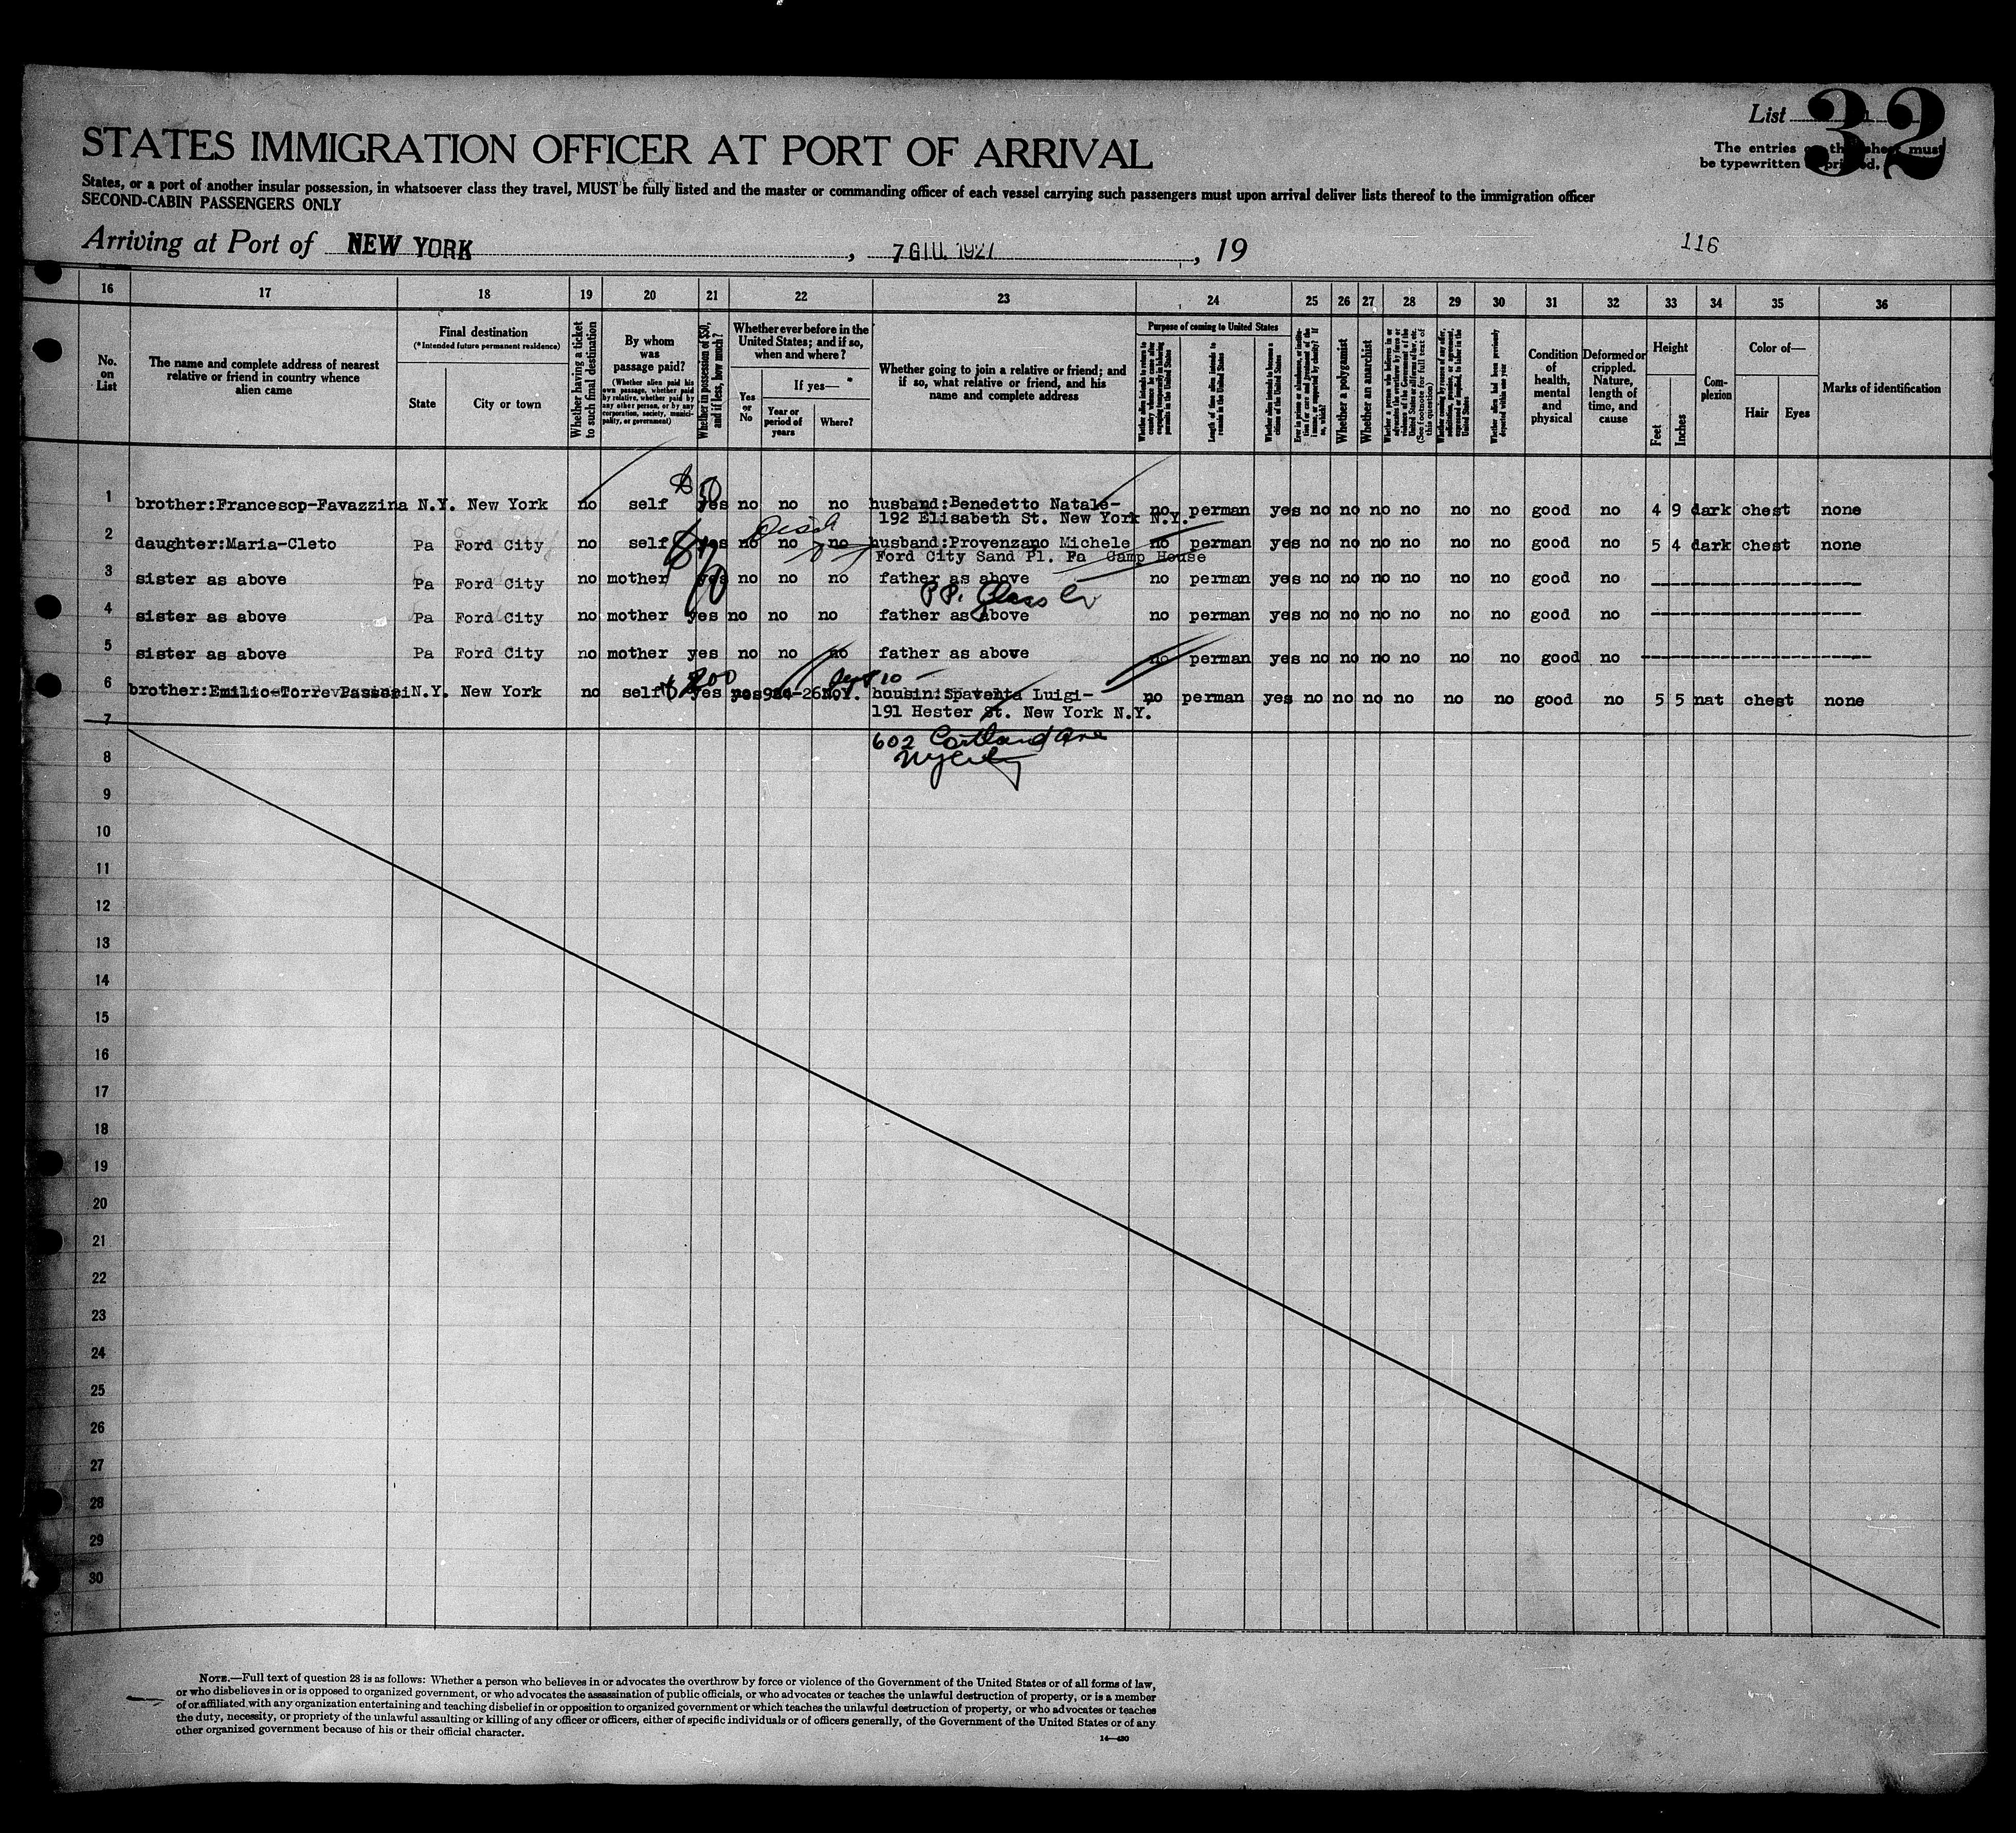 List 32
STATES IMMIGRATION OFFICER AT PORT OF ARRIVAL
The entries on this sheet must
be typewritten or printed.
States, or a port of another insular possession, in whatsoever class they travel, MUST be fully listed and the master or commanding officer of each vessel carrying such passengers must upon arrival deliver lists thereof to the immigration officer
SECOND-CABIN PASSENGERS ONLY
Arriving at Port of NEW YORK, 7 GIU. 1927, 19
116
16 17 18 19 20 21 22 23 24 25 26 27 28 29 30 31 32 33 34 35 36
No. on List
The name and complete address of nearest relative or friend in country whence alien came
Final destination
(*Intended future permanent residence)
State
City or town
Whether having a ticket to such final destination
By whom was passage paid?
(Whether alien paid his own passage, whether paid by relative, whether paid by any other person, or by any corporation, society, municipality, or government)
Whether in possession of $50, and if less, how much?
Whether ever before in the United States; and if so, when and where?
Yes or No
If yes—
Year or period of years
Where?
Whether going to join a relative or friend; and if so, what relative or friend, and his name and complete address
Purpose of coming to United States
Whether alien intends to return to country whence he came after engaging temporarily in laboring pursuits in the United States
Length of time alien intends to remain in the United States
Whether alien intends to become a citizen of the United States
Ever in prison or almshouse, or institution for care and treatment of the insane, or supported by charity? If so, which?
Whether a polygamist
Whether an anarchist
Whether a person who believes in or advocates the overthrow by force or violence of the Government of the United States or all forms of law, etc. (See footnote for full text of this question)
Whether coming by reason of any offer, solicitation, promise, or agreement, expressed or implied, to labor in the United States
Whether alien had been previously deported within one year
Condition of health, mental and physical
Deformed or crippled. Nature, length of time, and cause
Height
Feet
Inches
Complexion
Color of—
Hair
Eyes
Marks of identification
1 brother:Francescp-Favazzina N.Y. New York no self $50 yes no no no husband:Benedetto Natale- no perman yes no no no no no no good no 4 9 dark chest none
192 Elisabeth St. New York N.Y.
2 daughter:Maria-Cleto Pa Ford City no self yes no no no husband:Provenzano Michele no perman yes no no no no no no good no 5 4 dark chest none
Ford City Sand Pl. Pa Camp House
3 sister as above Pa Ford City no mother yes no no no father as above no perman yes no no no no no no good no
P.P. Glass Co
4 sister as above Pa Ford City no mother yes no no no father as above no perman yes no no no no no no good no
5 sister as above Pa Ford City no mother yes no no no father as above no perman yes no no no no no no good no
6 brother:Emilio-Torre Passeri N.Y. New York no self $200 yes yes 920-26 N.Y. housin:Spaventa Luigi- no perman yes no no no no no no good no 5 5 nat chest none
191 Hester St. New York N.Y.
7
602 Cortland Ave
NYCity
8
9
10
11
12
13
14
15
16
17
18
19
20
21
22
23
24
25
26
27
28
29
30
NOTE.—Full text of question 28 is as follows: Whether a person who believes in or advocates the overthrow by force or violence of the Government of the United States or of all forms of law,
or who disbelieves in or is opposed to organized government, or who advocates the assassination of public officials, or who advocates or teaches the unlawful destruction of property, or is a member
of or affiliated with any organization entertaining and teaching disbelief in or opposition to organized government or which teaches the unlawful destruction of property, or who advocates or teaches
the duty, necessity, or propriety of the unlawful assaulting or killing of any officer or officers, either of specific individuals or of officers generally, of the Government of the United States or of any
other organized government because of his or their official character.
14—430